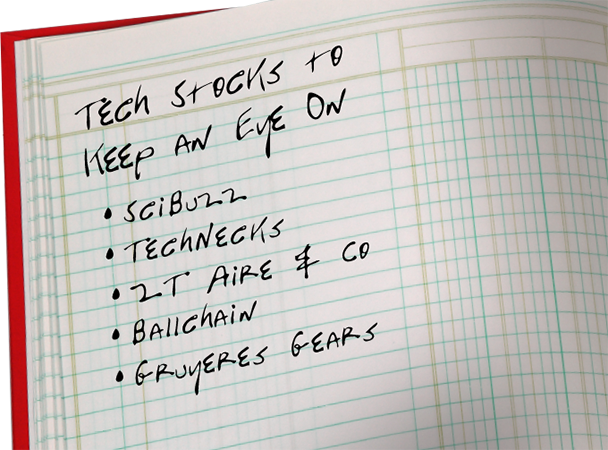 TECH STOCKS TO
KEEP AN EYE ON
• SCIBUZZ
• TECHNECKS
• 2T AIRE & CO
• BALLCHAIN
• GRUYERES GEARS